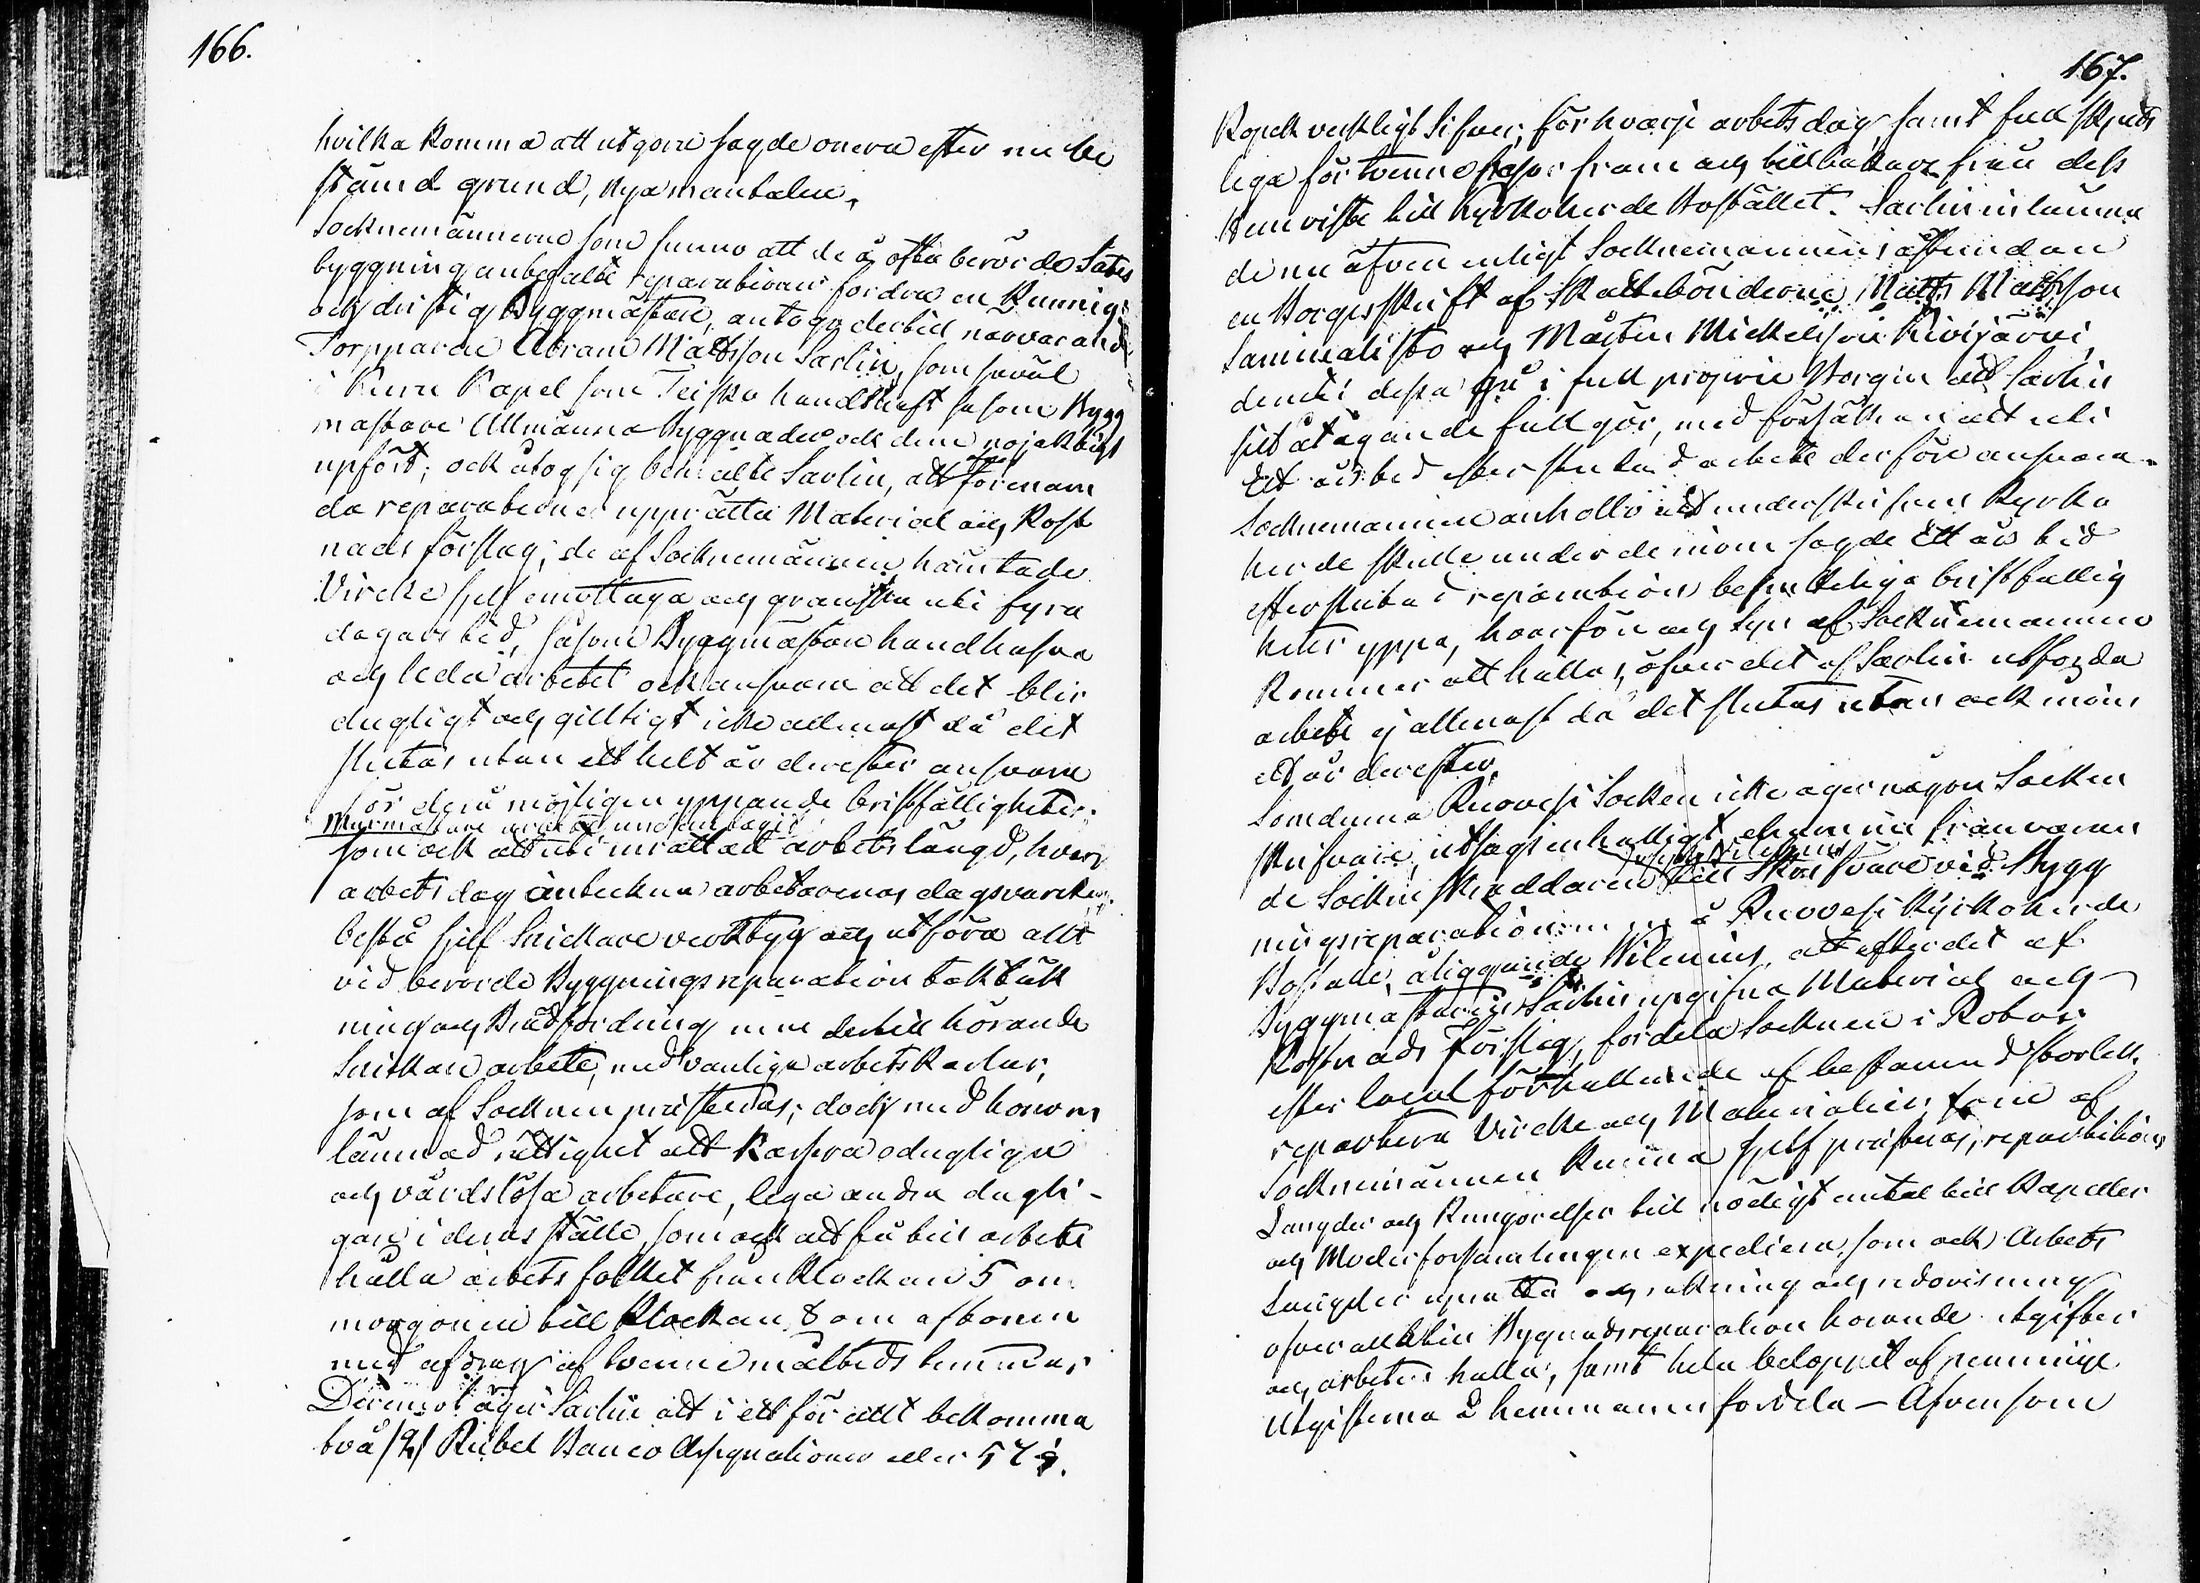 166.
hvilka komma att utgöra sagde onera efter nu be
stämd grund, nya mantalen.
Socknemännerne som funno att de å ofta berörde Sätes
byggning anbefalte reparationer fordra en kunnig
och driftig Byggmästare, antogo dertill närvarande
Torpparen Abram Mattsson Sarlin, som såväl
i Kuru Kapel som Teisko handshaft såsom Bygg
mästare Allmänna Byggnader och dem nöjaktigt
upfört; och åtog sig bemälte Sarlin, att förenäm
da reparationer upprätta Material och Kost
nads förslag; de af Socknemännen hämtade
Virke sjelf emottaga och granska uti fyra
dagars tid, såsom Byggmästare handhafva
och leda arbetet och ansvara att det blir
dugligt och gilltigt icke allenast då det
slutas utan ett helt år derefter ansvara
för derå möjligen yppande bristfälligheter;
Murmästare arbetet undantagit
som ock att uti inrättad arbetslängd, hvarj
arbetsdag anteckna arbetarenas dagsverken,
bestå sjelf Snickare verktyg och utföra allt
vid berörde Byggningsreparation taktäck
ning och Brädfordring m.m. dertill hörande
Snickare arbete, med vanliga arbetskarlar,
som af Socknen præsteras; dock med honom
lämnad rättighet att kassera odugliga
och vårdslösa arbetare, lega andra dugli-
gare i deras ställe, som ock att få till arbete
hålla arbetsfolket från Klockan 5 om
morgonen till Klockan 8 om aftonen
med afdrag af tvenne måltids timmar
Deremot äger Sarlin att i ett för allt bekomma
två /2/ Rubel Banco Assignationer eller 57 1/7.
167.
Kopek verkligt Silfver, för hvarje arbetsdag, samt full skjuts
lega för tvenne resor fram och tillbakare från dess
hemvist till Kyrkoherde Bostället. Sarlin inlämna
de nu äfven enligt Socknemännens åstundan
en Borgesskrift af Skattebönderne Matts Mattsson
Sammalisto och Mårten Mickelsson Kivijärvi,
deruti dessa gå i full proprie Borgen att Sarlin
sitt åtagande fullgör, med förpliktan att uti
Ett års tid efter slutad arbete derföre ansvara.
Socknemännen anhöllo att underskrifven Kyrko
herde skulle under de inom sagde Ett års tid
efter slutad reparation befintteliga bristfällig
heter yppa, hvarföre och Syn af Socknemännen
kommer att hållas, öfver det af Sarlin utförda
arbete ej allenast då det slutas utan ock inom
ett år derefter.
Som denna Ruovesi Socken icke äger någon Socken
skrifvare, utsågs enhälligt hemma frånvaran
de Sockneskräddaren till Skrifvare vid Bygg
ningsreparationen å Ruovesi Kyrkoherde
Boställe, åliggande Wilenius, att efter det af
Byggmästaren Sarlin upgifna Material och
Kostnads Förslag, fördela Socknen i Rotar
efter local förhållande af bestämd storlek,
repartera Virke och Materialier, som af
Socknemännen kunna sjelf præsteras, repartitions
Längder och Kungörelser till nödigt antal till Kapeller
och Moderförsamlingen expediera, som ock Arbets
Längder upprätta och räkning och redovisning
öfver all till Bygnadsreparation hörande utgifter
och arbeten hålla, samt hela beloppet af penninge
utgifterna å hemmanen fördela – Äfvensom